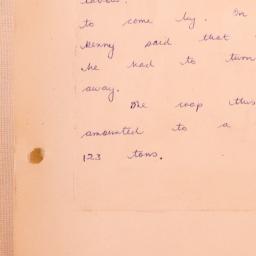 to come by. On
Kenny said that
he had to turn
away.
The crop this
amounted to a
123 tons.